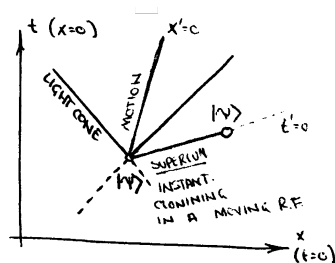 t (x=0)
x'=0
LIGHT CONE
MOTION
|ψ⟩
t'=0
|ψ⟩
SUPERIUM
INSTANT.
CLONINING
IN A MOVING R.F.
x
(t=0)